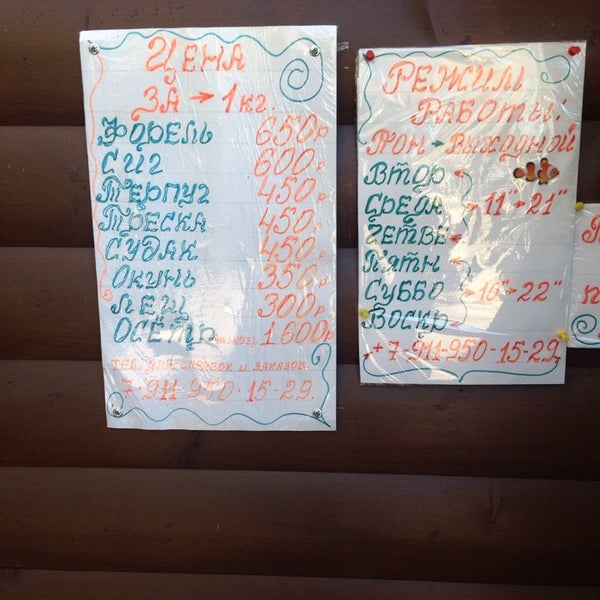 ЦЕНА
ЗА → 1 кг.
ФОРЕЛЬ 650р
СИГ 600р
ТЕРПУГ 450р
ТРЕСКА 450р
СУДАК 450р
ОКУНЬ 350р
ЛЕЩ 300р
ОСЁТР (НА ЗАКАЗ) 1600р
ТЕЛ. ДЛЯ СПРАВОК И ЗАКАЗОВ
7-911-950-15-29.
РЕЖИМ
РАБОТЫ:
ПОН → ВЫХОДНОЙ
ВТОР
СРЕДА 11°°→21°°
ЧЕТВЕ
ПЯТН
СУББО 10°°→22°°
ВОСКР
+7-911-950-15-29